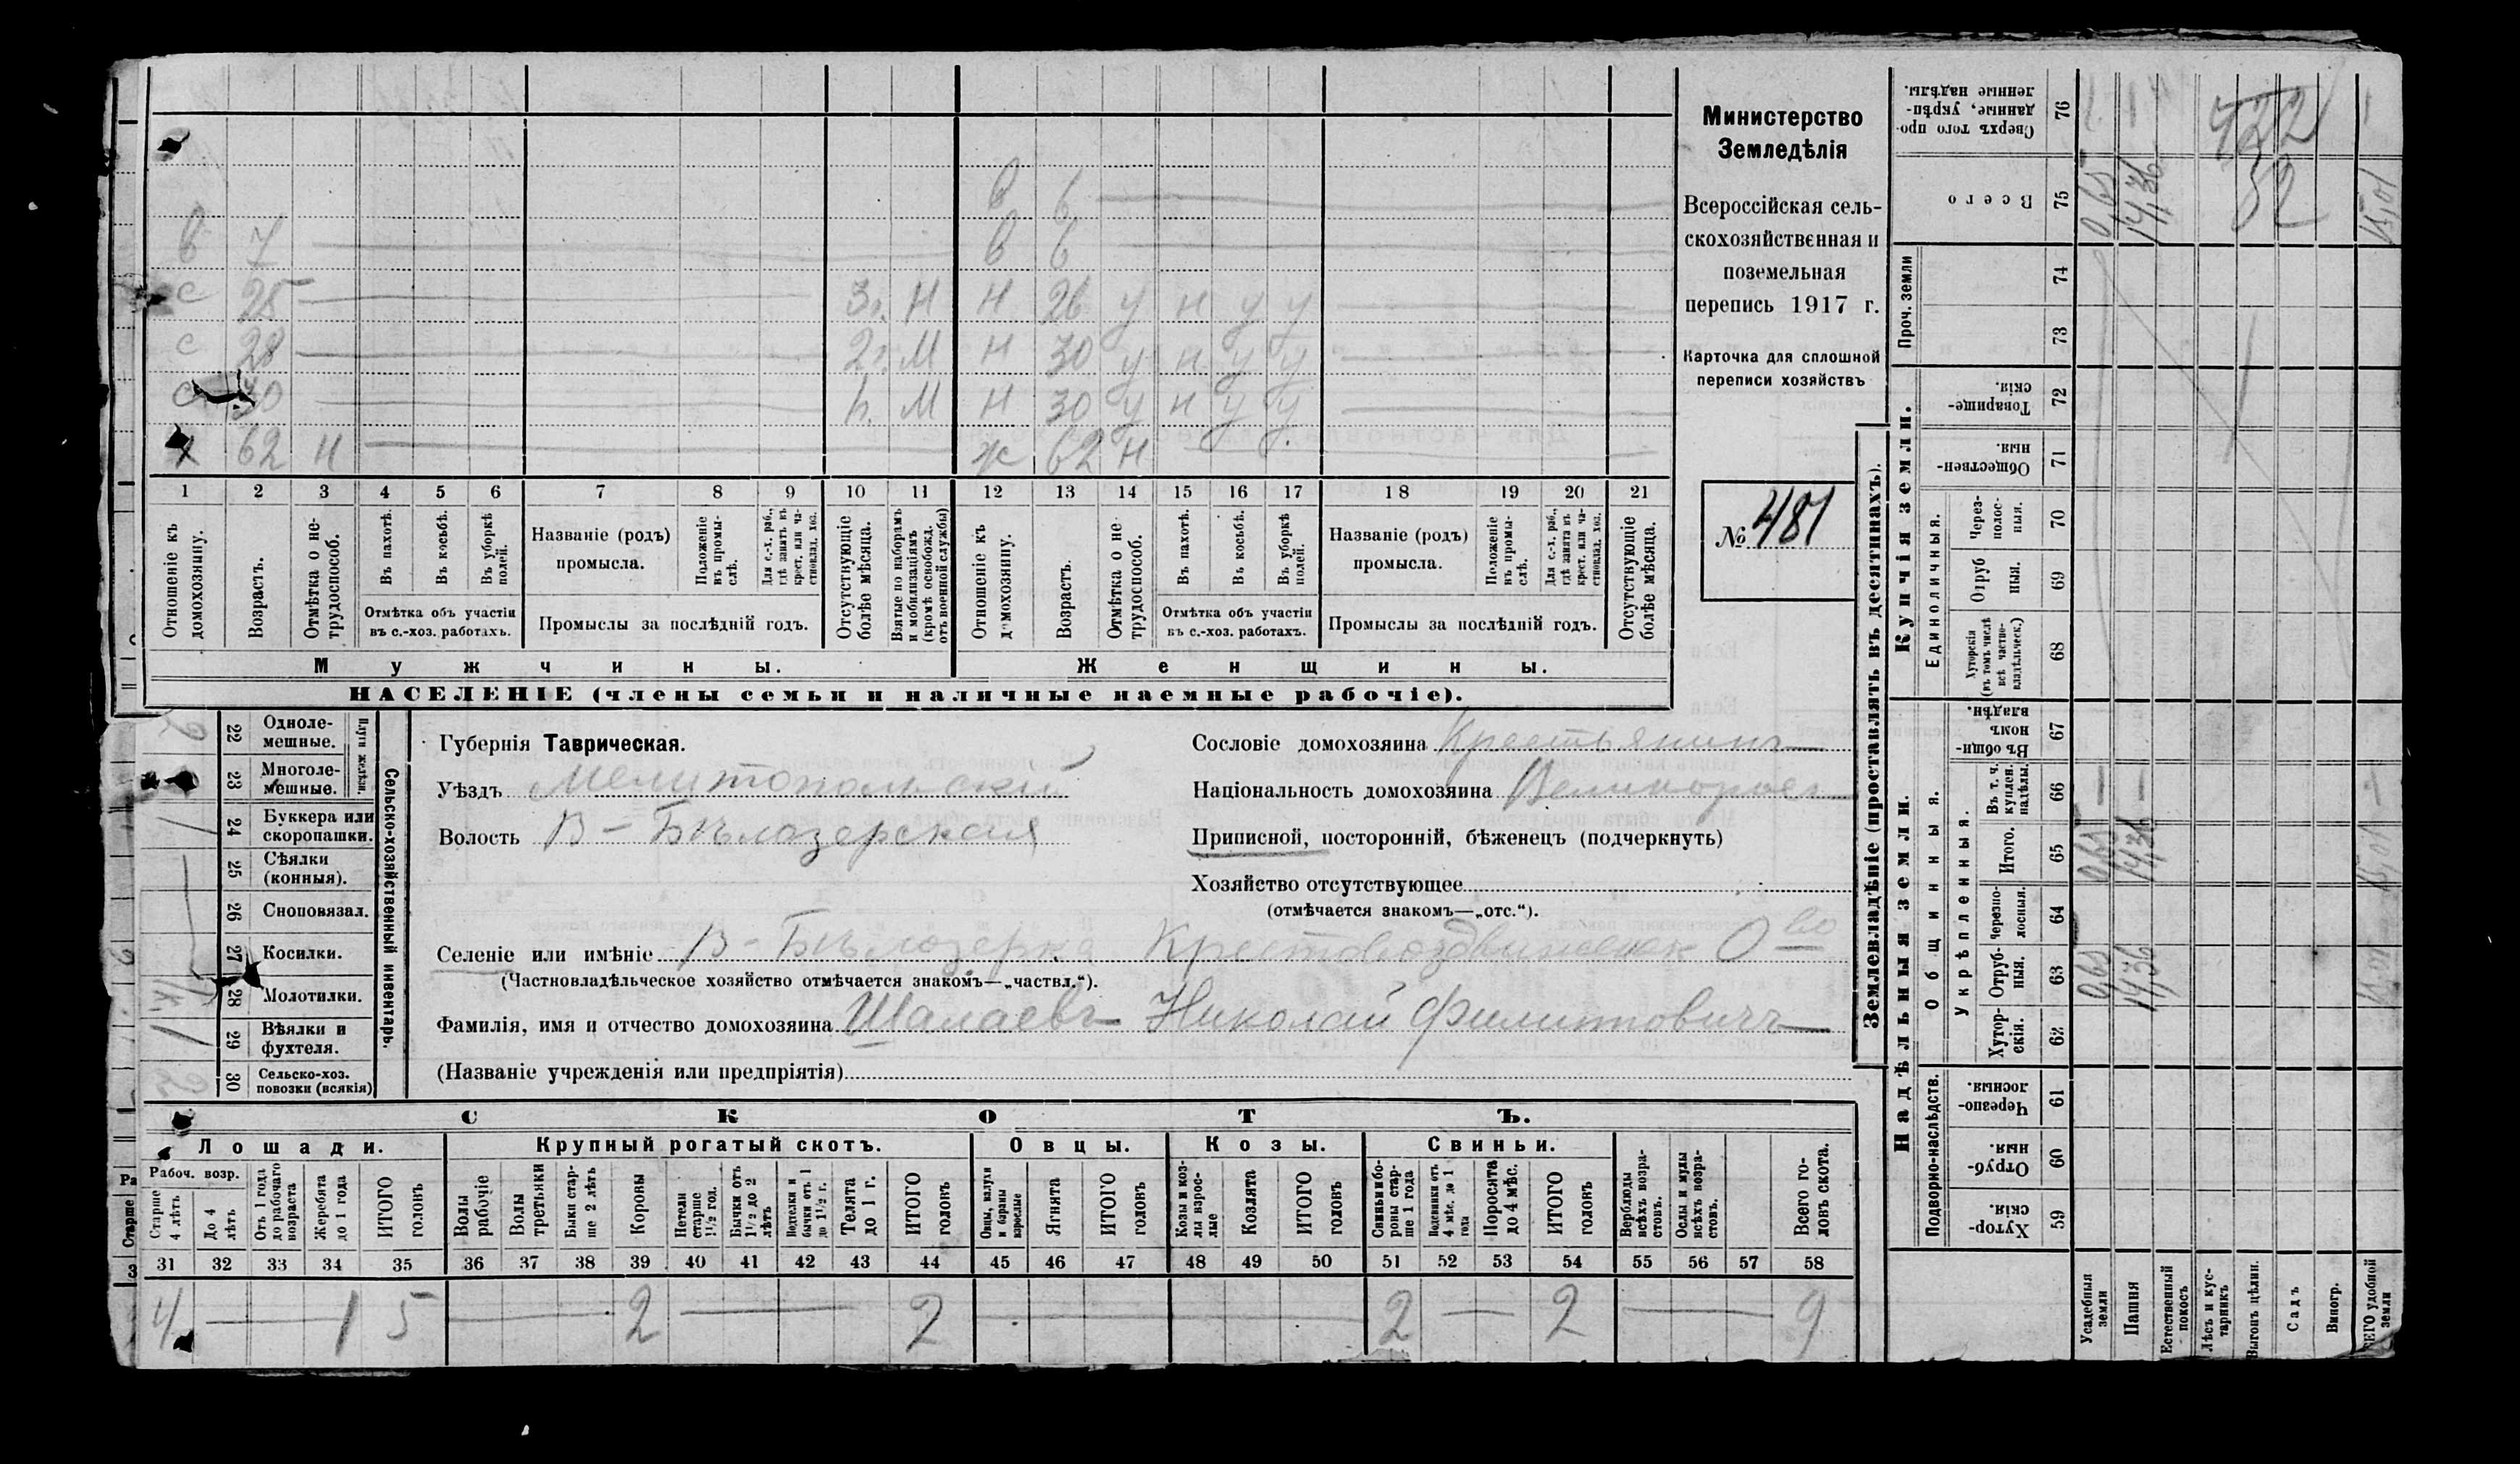 в 6
в 7 в 6
с 25 3г. Н Н 26 у н у у
с 28 2г. М Н 30 у н у у
с 30 М Н 30 у н у у
62 Н ж 62 Н
1 2 3 4 5 6 7 8 9 10 11 12 13 14 15 16 17 18 19 20 21
Отношеніе къ домохозяину.
Возрастъ.
Отмѣтка о не-трудоспособ.
Въ пахотѣ.
Въ косьбѣ.
Въ уборкѣ полей.
Отмѣтка объ участіи
въ с.-хоз. работахъ.
Названіе (родъ)
промысла.
Положеніе въ промы-слѣ.
Для с.-х. раб., гдѣ занятъ въ крест. или ча-стновлад. хоз.
Промыслы за послѣдній годъ.
Отсутствующіе болѣе мѣсяца.
Взятые по наборамъ и мобилизаціямъ (кромѣ освобожд. отъ военной службы)
Отношеніе къ домохозяину.
Возрастъ.
Отмѣтка о не-трудоспособ.
Въ пахотѣ.
Въ косьбѣ.
Въ уборкѣ полей.
Отмѣтка объ участіи
въ с.-хоз. работахъ.
Названіе (родъ)
промысла.
Положеніе въ промы-слѣ.
Для с.-х. раб., гдѣ занята въ крест. или ча-стновлад. хоз.
Промыслы за послѣдній годъ.
Отсутствующіе болѣе мѣсяца.
Мужчины. Женщины.
НАСЕЛЕНІЕ (члены семьи и наличные наемные рабочіе).
Министерство
Земледѣлія
Всероссійская сель-
скохозяйственная и
поземельная
перепись 1917 г.
Карточка для сплошной
переписи хозяйствъ
№ 481
22 Одноле-мешные.
23 Многоле-мешные.
Плуги желѣзн.
24 Буккера или скоропашки. 1
25 Сѣялки (конныя).
26 Сноповязал.
27 Косилки.
28 Молотилки.
29 Вѣялки и фухтеля. 1
30 Сельско-хоз. повозки (всякія)
Сельско-хозяйственный инвентарь.
Губернія Таврическая.
Уѣздъ Мелитопольскій
Волость В-Бѣлозерская
Сословіе домохозяина Крестьянинъ
Національность домохозяина Великороссъ
Приписной, посторонній, бѣженецъ (подчеркнуть)
Хозяйство отсутствующее
(отмѣчается знакомъ—„отс.“).
Селеніе или имѣніе В-Бѣлозерка Крестовоздвиженск О-во
(Частновладѣльческое хозяйство отмѣчается знакомъ—„частвл.“).
Фамилія, имя и отчество домохозяина Шалаевъ Николай Филипповичъ
(Названіе учрежденія или предпріятія)
СКОТЪ.
Лошади. Крупный рогатый скотъ. Овцы. Козы. Свиньи.
Рабоч. возр.
Старше 4 лѣтъ
До 4 лѣтъ
Отъ 1 года до рабочаго возраста
Жеребята до 1 года
ИТОГО головъ
Волы рабочіе
Волы третьяки
Быки стар-ше 2 лѣтъ
Коровы
Нетели старше 1½ год.
Бычки отъ 1½ до 2 лѣтъ
Подтелки и бычки отъ 1 до 1½ г.
Телята до 1 г.
ИТОГО головъ
Овцы, валухи и бараны взрослые
Ягнята
ИТОГО головъ
Козы и коз-лы взрос-лые
Козлята
ИТОГО головъ
Свиньи и бо-роны стар-ше 1 года
Подсвинки отъ 4 мѣс. до 1 года
Поросята до 4 мѣс.
ИТОГО головъ
Верблюды всѣхъ возра-стовъ.
Ослы и мулы всѣхъ возра-стовъ.
Всего го-ловъ скота.
31 32 33 34 35 36 37 38 39 40 41 42 43 44 45 46 47 48 49 50 51 52 53 54 55 56 57 58
4 — 1 5 — 2 — 2 — 2 — 2 — 9
Землевладѣніе (проставлять въ десятинахъ).
Купчія земли.
Надѣльныя земли.
Сверхъ того про-данные, укрѣп-ленные надѣлы. 76
Всего 75 0,65 14,36 15,01
422
52
Проч. земли 74 73
Товарище-скія. 72
Обществен-ныя. 71
Единоличныя.
Через-полос-ныя. 70
Отруб-ныя. 69
Хуторскія (въ томъ числѣ всѣ частно-владѣльческ.) 68
Общинныя.
Въ общин-номъ владѣн. 67
Укрѣпленныя.
Въ т. ч. куплен. надѣлы. 66 — — —
Итого. 65 0,65 14,36 15,01
Черезпо-лосныя. 64
Отруб-ныя. 63 0,65 14,36 15,01
Хутор-скія. 62
Подворно-наслѣдств.
Черезпо-лосныя. 61
Отруб-ныя. 60
Хутор-скія. 59
Усадебныя земли
Пашня
Естественный покосъ
Лѣсъ и кус-тарникъ
Выгонъ цѣлин.
Садъ
Виногр.
ЕГО удобной земли